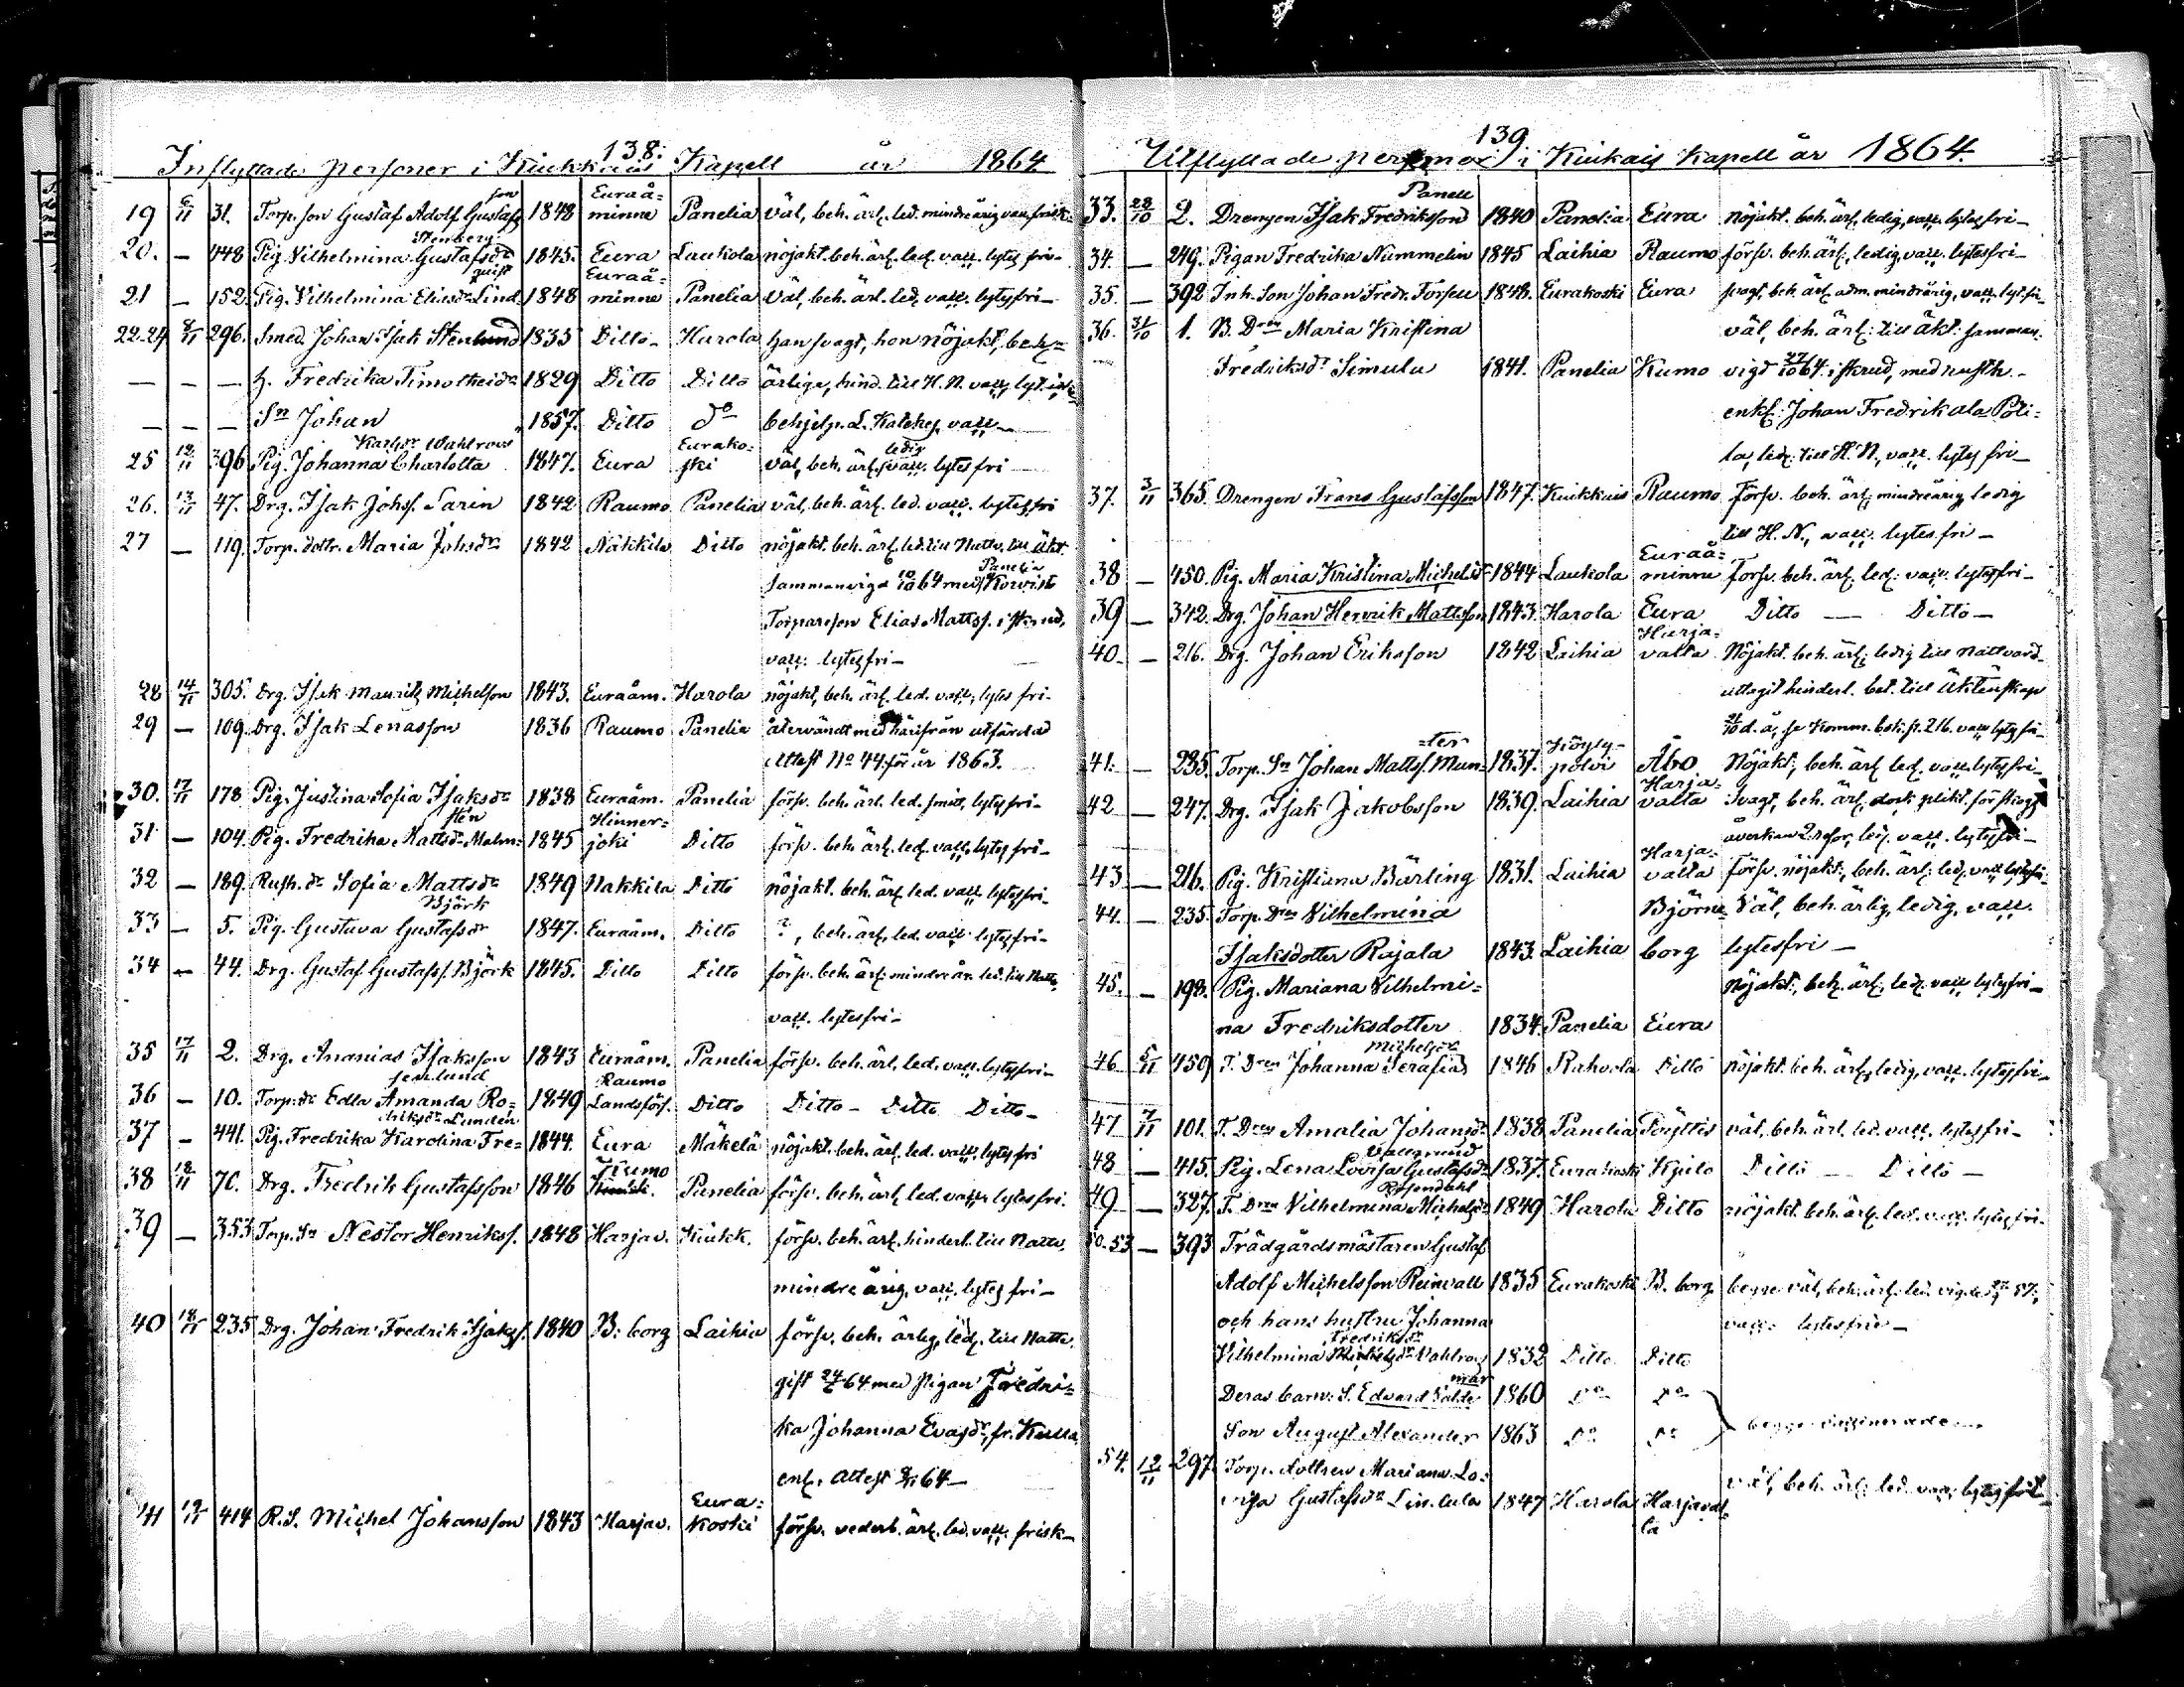 138.
Inflyttade personer i Kiukkais Kapell år 1864
19 6/11 31. Torp. son Gustaf Adolf Gustafsson 1848 Euraåminne Panelia väl, beh. ärl. led. mindreårig vacc. frisk
20. — 448 Pig. Vilhelmina Gustafsdr Stenberg 1845. Eura Laukola nöjakt. beh. ärl. led. vacc. lytes fri-
21 — 152. Pig. Vilhelmina Eliasdr Lindquist 1848 Euraåminne Panelia väl, beh. ärl. led. vacc. lytesfri-
22-24 8/11 296. Smed. Johan Isak Stenlund 1835 Ditto- Harola han svagt, hon nöjakt, beh.
— — — h. Fredrika Timotheidr 1829 Ditto Ditto ärliga, hind. till H. N. vacc. lyt.
— — — Sn Johan 1857. Ditto do behjelp. L. Katekes. vacc —
25 12/11 396 Pig. Johanna Charlotta Karlsdr Wahlroos 1847. Eura Eurakoski väl, beh. ärl. ledig vacc. lytes fri
26. 13/11 47. Drg. Isak Johs. Sarin 1842 Raumo Panelia väl, beh. ärl. led. vacc. lytesfri
27 — 119. Torp. dottr. Maria Johsdr 1842 Nakkila Ditto nöjakt. beh. ärl. led. till Nattv. till äkt.
sammanvigd 64 med Panelia Korvista
Torpareson Elias Mattss. i skrud,
vacc. lytesfri-
28 14/11 305. Drg. Isak Mauritz Michelson 1843. Euraåm. Harola nöjakt, beh. ärl. led. vacc. lytes fri.
29 — 109. Drg. Isak Lenasson 1836 Raumo Panelia återvändt med härifrån utfärdad
attest No 44 för år 1863.
30. 17/11 178 Pig. Justina Sofia Isaksdr 1838 Euraåm. Panelia försv. beh. ärl. led. smitt. lytesfri-
31 — 104. Pig. Fredrika Mattsdr Malmstén 1845 Hinnerjoki Ditto försv. beh. ärl. led. vacc. lytesfri-
32 — 189. Rusth. dr Sofia Mattsdr 1849 Nakkila Ditto nöjakt. beh. ärl. led. vacc. lytesfri-
33 — 5. Pig. Gustava Gustafsdr Björk 1847. Euraåm. Ditto ?, beh. ärl. led. vacc. lytesfri-
34 — 44. Drg. Gustaf Gustafss. Björk 1845. Ditto Ditto försv. beh. ärl. mindreår. led. till Nattv,
vacc. lytesfri-
35 17/11 2. Drg. Ananias Isaksson 1843 Euraåm. Panelia försv. beh. ärl. led. vacc. lytesfri-
36 — 10. Torp. dr Edla Amanda Rosenlund 1849 Raumo Landsförs. Ditto Ditto- Ditto Ditto-
37 — 441. Pig. Fredrika Karolina Fredriksdr Lundén 1844. Eura Mäkelä nöjakt. beh. ärl. led. vacc. lytesfri
38 18/11 70. Drg. Fredrik Gustafsson 1846 Kumo Panelia försv. beh. ärl. led. vacc. lytesfri.
39 — 353 Torp. Sn Nestor Henrikss. 1848 Harjav. Kiukk. försv. beh. ärl. hinderl. till Nattv.
mindreårig, vacc. lytes fri-
40 18/11 235 Drg. Johan Fredrik Isakss. 1840 B: borg Laihia försv. beh. ärlig, led. till Nattv.
gift 64 med Pigan Fredri=
ka Johanna Evasdr, fr. Kulla
enl. attest 64—
41 19/11 414 R. S. Michel Johansson 1843 Harjav. Eurakoski försv. vederb. ärl. led. vacc. frisk—
139.
Utflyttade personer i Kiukais Kapell år 1864.
33. 28/10 2. Drengen Isak Fredriksson Panell 1840 Panelia Eura nöjakt. beh. ärl. ledig, vacc. lytesfri—
34. — 249. Pigan Fredrika Nummelin 1845 Laihia Raumo försv. beh. ärl., ledig, vacc. lytesfri-
35. — 392 Inh. Son Johan Fredr. Forsell 1848. Eurakoski Eura svagt, beh. ärl. adm. mindreårig, vacc. lyt. fri-
36. 31/10 1. B. Dren Maria Kristina väl, beh. ärl: till äkt: samman-
Fredriksdr Simula 1841. Panelia Kumo vigd 64. i skrud, med rusth.-
enkl. Johan Fredrik ala Pöli=
la, led. till H. N., vacc. lytes fri—
37. 3/11 365. Drengen Frans Gustafsson 1847. Kiukkais Raumo försv. beh. ärl. mindreårig ledig
till H. N., vacc. lytes fri —
38 — 450. Pig. Maria Kristina Michelsdr 1844 Laukola Euraåminne försv. beh. ärl. led. vacc. lytesfri-
39 — 342. Drg. Johan Henrik Mattsson 1843. Harola Eura Ditto — Ditto —
40. — 216. Drg. Johan Eriksson 1842 Laihia Harjavalta Nöjakt. beh. ärl. ledig till nattvard
uttagit hinderl. bet. till äktenskap
d. å, se Komm. bok. p. 216. vacc lytes fri-
41. — 235. Torp. Sn Johan Mattss. Munter 1837. Köylypolvi Åbo Nöjakt, beh. ärl. led. vacc. lytesfri-
42 — 247. Drg. Isak Jakobsson 1839. Laihia Harjavalta svagt, beh. ärl. dock plikt. för skogs
åverkan 2 resor, led. vacc. lytesfri-
43 — 216. Pig. Kristiana Bärling 1831. Laihia Harjavalta försv. nöjakt., beh. ärl. led. vacc lytesfri-
44. — 235. Torp. Dren Vilhelmina Björne= Väl, beh. ärlig, ledig, vacc.
Isaksdotter Rajala 1843. Laihia borg lytesfri —
45. — 198. Pig. Mariana Vilhelmi= nöjakt, beh. ärl, led. vacc lytesfri-
na Fredriksdotter 1834. Panelia Eura
46 5/11 459 T. Dren Johanna Serafia Michelsdr 1846 Rahvola Ditto nöjakt. beh. ärl, ledig, vacc. lytesfri-
47 7/11 101. T. Dren Amalia Johansdr 1838 Panelia Pöyttis väl, beh. ärl. led. vacc. lytesfri-
48 — 415. Pig. Lena Lovisa Gustafsdr 1837. Eurakoski Kjulo Ditto — Ditto —
49 — 327. T. Dren Vilhelmina Michelsdr Rosendahl 1849 Harola Ditto nöjakt. beh. ärl. led. vacc. lytes fri-
50-53 — 393 Trädgårdsmästaren Gustaf
Adolf Michelsson Reinvall 1835 Eurakoski B. borg begge väl, beh. ärl. led. vigde 57,
och hans hustru Johanna vacc. lytesfria —
Vilhelmina Fredriksdr Vahlroos 1832 Ditto Ditto
Deras barn: S. Edvard Valdemar 1860 Do Do
Son August Alexander 1863 Do Do begge vaccinerade
54. 12/11 297. Torp. dottren Mariana Lo= väl, beh. ärl. led. vacc. lytesfri
visa Gustafsdr 1847 Harola Harjavalla